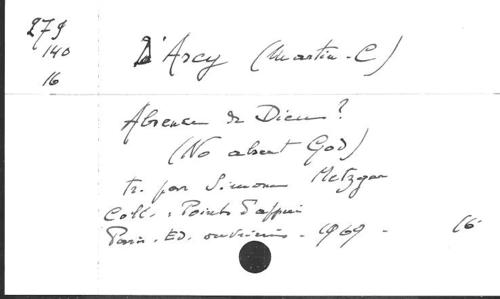 279
140
16
D'Arcy (Martin-C)
Absence de Dieu ?
(No absent God)
tr. par Simonne Metzger
Coll. : Points d'appui
Paris. Ed. ouvrières - 1969 - 16